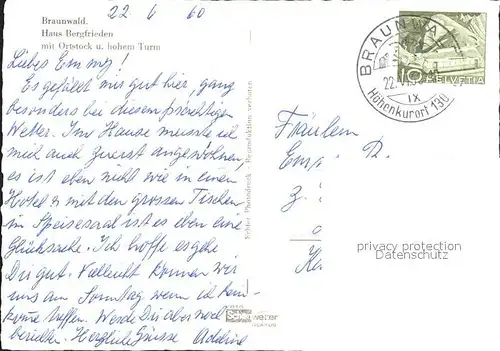 22. 6. 60
Braunwald.
Haus Bergfrieden
mit Ortstock u. hohem Turm
Liebes Emmy!
Es gefällt mir gut hier, ganz
besonders bei diesem prächtigen
Wetter. Im Hause musste ich
mich auch zuerst angewöhnen,
es ist eben nicht wie in einem
Hotel & mit den grossen Tischen
im Speisesaal ist es eben eine
Glücksache. Ich hoffe es gehe
Dir gut. Vielleicht können wir
uns am Sonntag wenn ich
komme treffen. Werde Dir aber noch
berichten. Herzliche Grüsse
Echter Photodruck Reproduktion verboten
BRAUNWALD
22.VI.
IX
Höhenkurort 130
10 HELVETIA
Fräulein
R.
Z.
privacy protection
Datenschutz